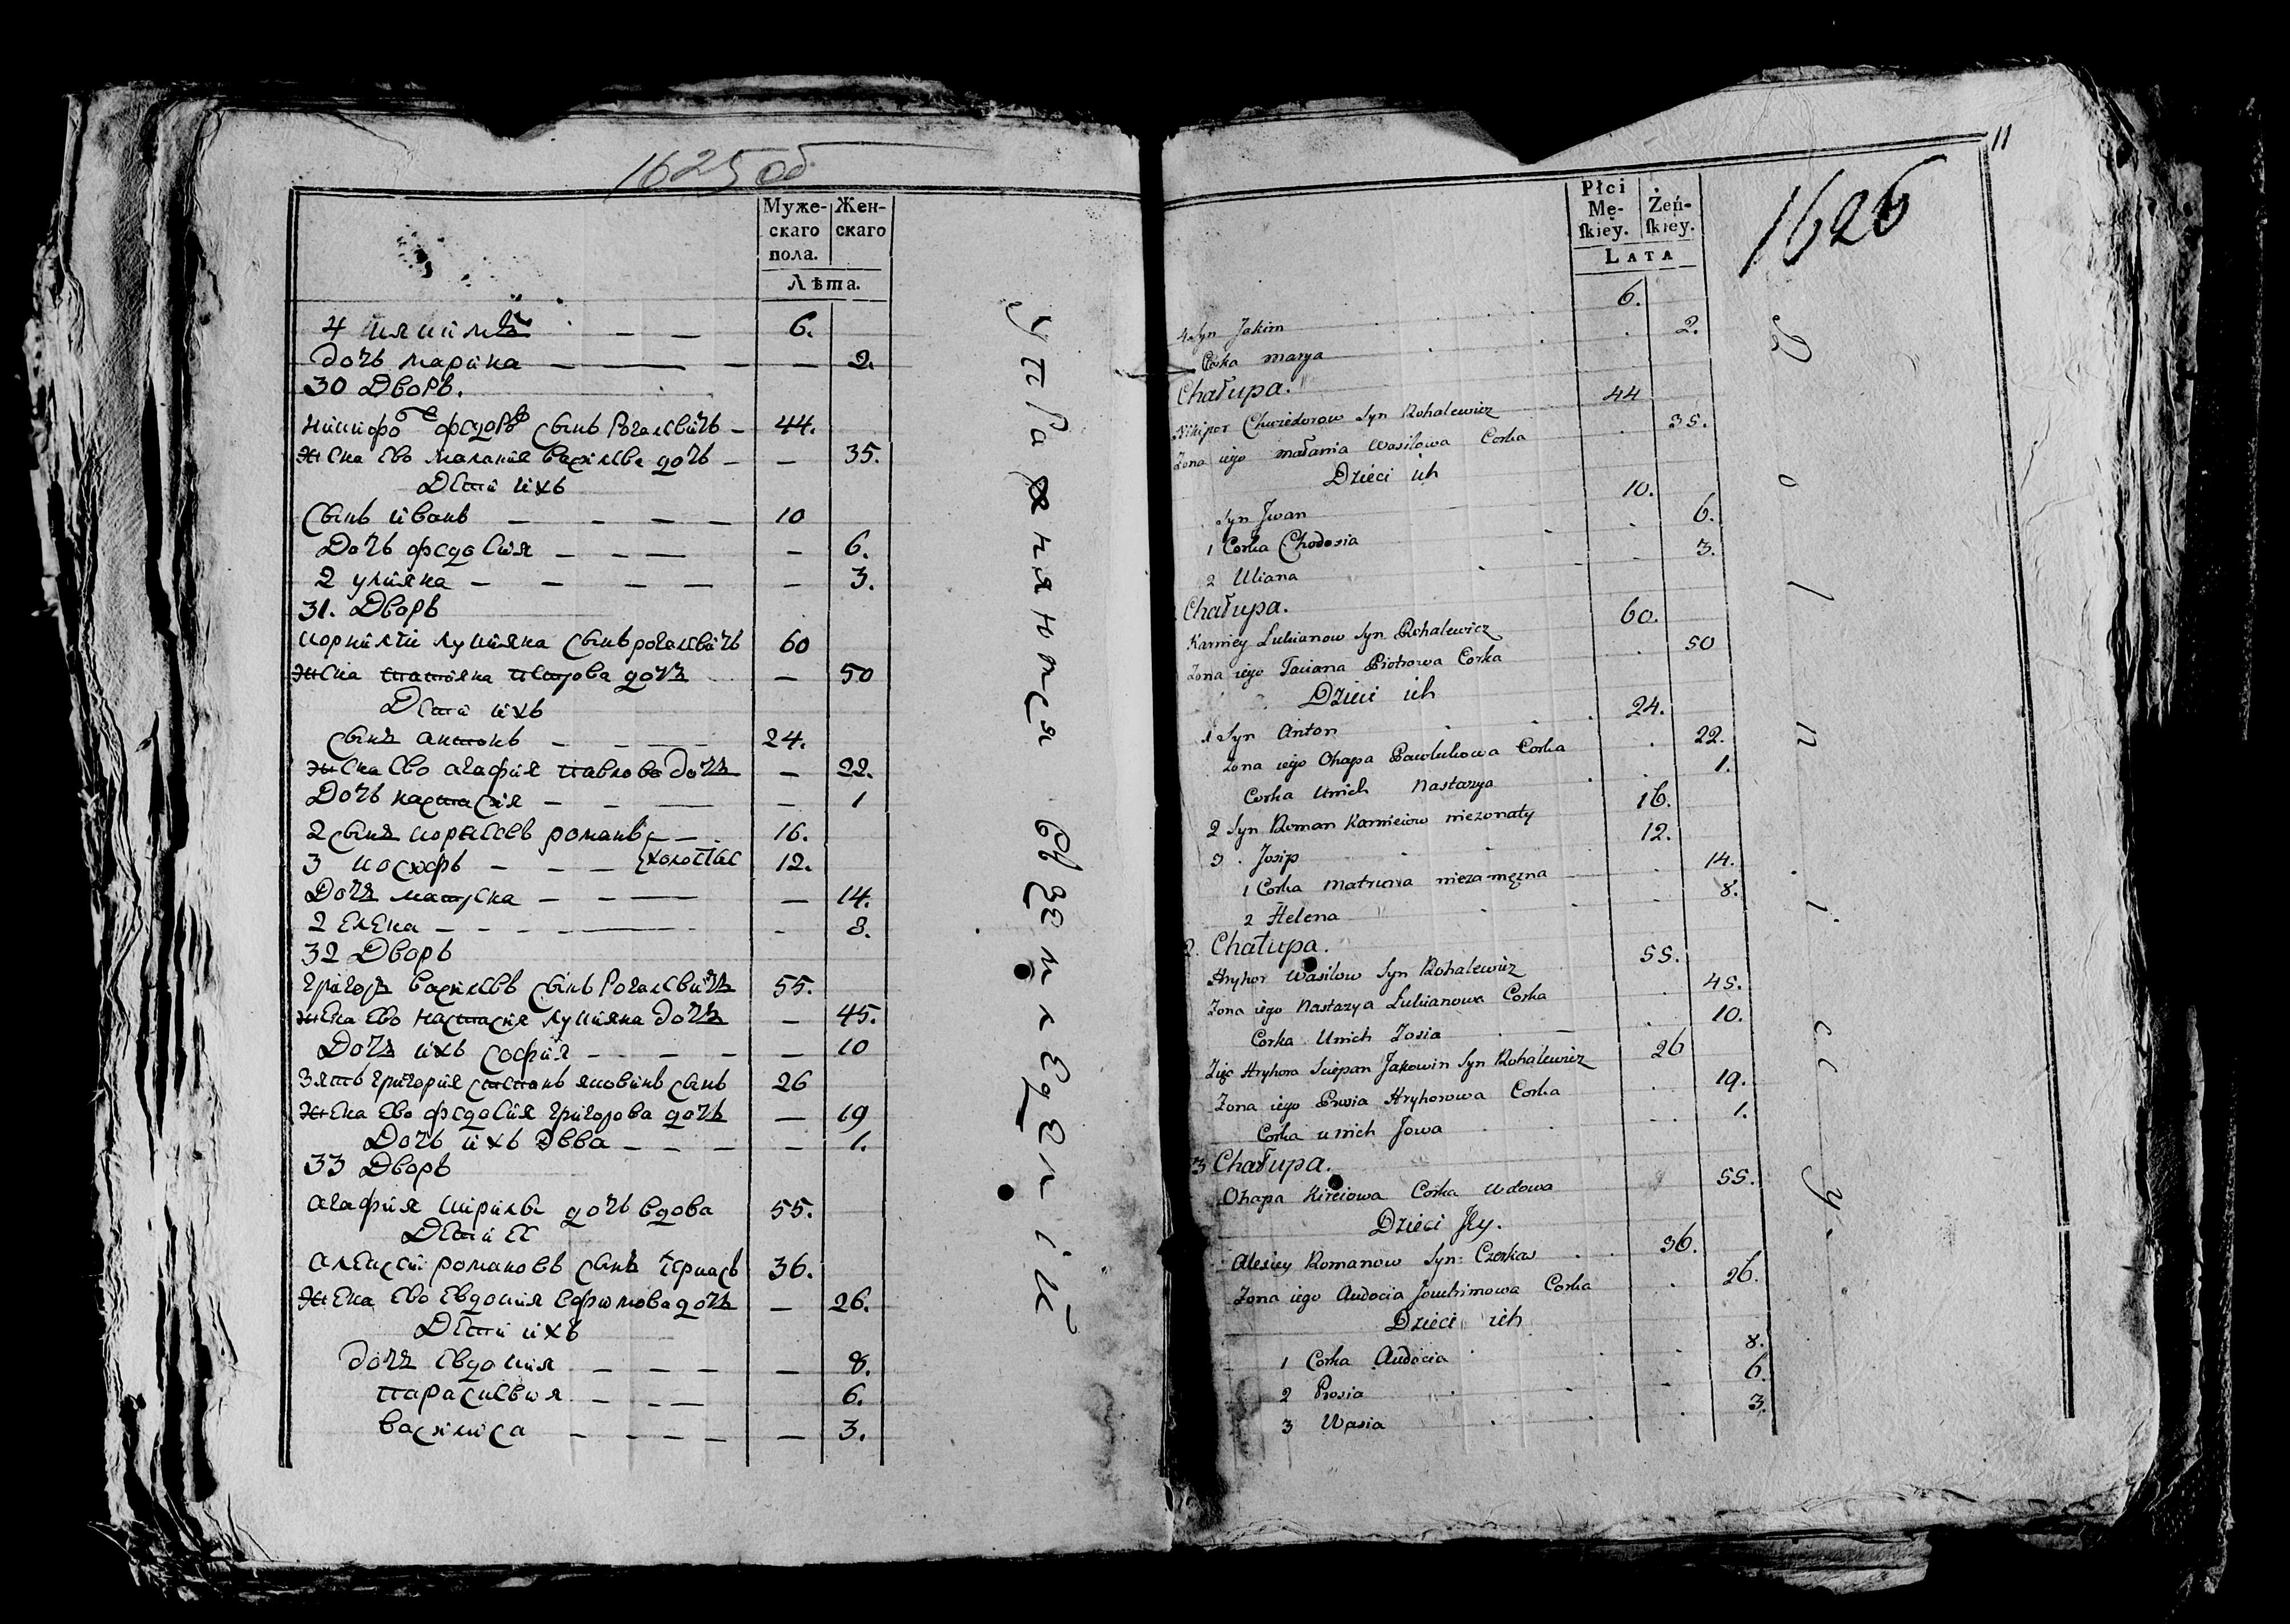 1625 об
Муже-
скаго
пола.
Жен-
скаго
Лѣта.
4 иякимъ — — 6.
дочь марина — — — 2.
30 Дворъ.
никифоръ федоровъ сынъ Рогалевичъ — 44.
жена ево малания василева дочь — — 35.
Дети ихъ
сынъ иванъ — — — — 10
Дочь федосия — — — — 6.
2 улияна — — — — — 3.
31. Дворъ
корнилий лукияна сынъ рогалевичъ 60
жена татияна петрова дочъ — 50
Дети ихъ
сынъ антонъ — — — — 24.
жена ево агафия павлова дочъ — 22.
Дочь настасия — — — — 1
2 сынъ корнеевъ романъ — — 16.
3 иосифъ — — — холостые 12.
Дочъ матрена — — — — 14.
2 елена — — — — — 8.
32 Дворъ
григоръ василевъ сынъ Рогалевичъ 55.
жена ево настасия лукияна дочъ — 45.
Дочъ ихъ софия — — — — — 10
Зять григория степанъ яковинъ сынъ 26
жена ево федосия григорова дочъ — 19
Дочь ихъ Эвва — — — — 1.
33 Дворъ
агафия кирилва дочь вдова 55.
Дети ее
алексей романовъ сынъ черкасъ 36.
жена ево евдокия ефимова дочъ — 26.
Дети ихъ
дочъ евдокия — — — — 8.
параскевия — — — 6.
василиса — — — — — 3.
упражняются въ земледелии
11
1626
Płci
Mę-
ſkiey.
Żeń-
ſkiey.
LATA
4 Syn Jakim 6.
Corka marya 2.
Chałupa.
Nikipor Chwiedorow Syn Rohalewicz 44
Zona iego małania Wasilowa Corka 35.
Dzieci ich
Syn Jwan 10.
1 Corka Chodosia 6.
2 Uliana 3.
Chałupa.
Karniey Lukianow Syn Rohalewicz 60.
Zona iego Taciana Piotrowa Corka 50
Dzieci ich
1 Syn Anton 24.
Zona iego Ohapa Pawlukowa Corka 22.
Corka Unich Nastazya 1.
2 Syn Roman Karnieiow niezonaty 16.
3 Josip 12.
1 Corka Matruna niezamęzna 14.
2 Helena 8.
2. Chałupa.
Hryhor Wasilow Syn Rohalewicz 55.
Zona iego Nastazya Lukianowa Corka 45.
Corka Unich Zosia 10.
Zięc Hryhora Sciepan Jakowin Syn Rohalewicz 26
Zona iego Prosia Hryhorowa Corka 19.
Corka unich Jowa 1.
3 Chałupa.
Ohapa Kireiowa Corka Wdowa 55.
Dzieci Jey.
Alesiey Romanow Syn Czerkas 36.
Zona iego Audocia Jouchimowa Corka 26.
Dzieci ich
1 Corka Audocia 8.
2 Prosia 6.
3 Wasia 3.
Rolniccy.